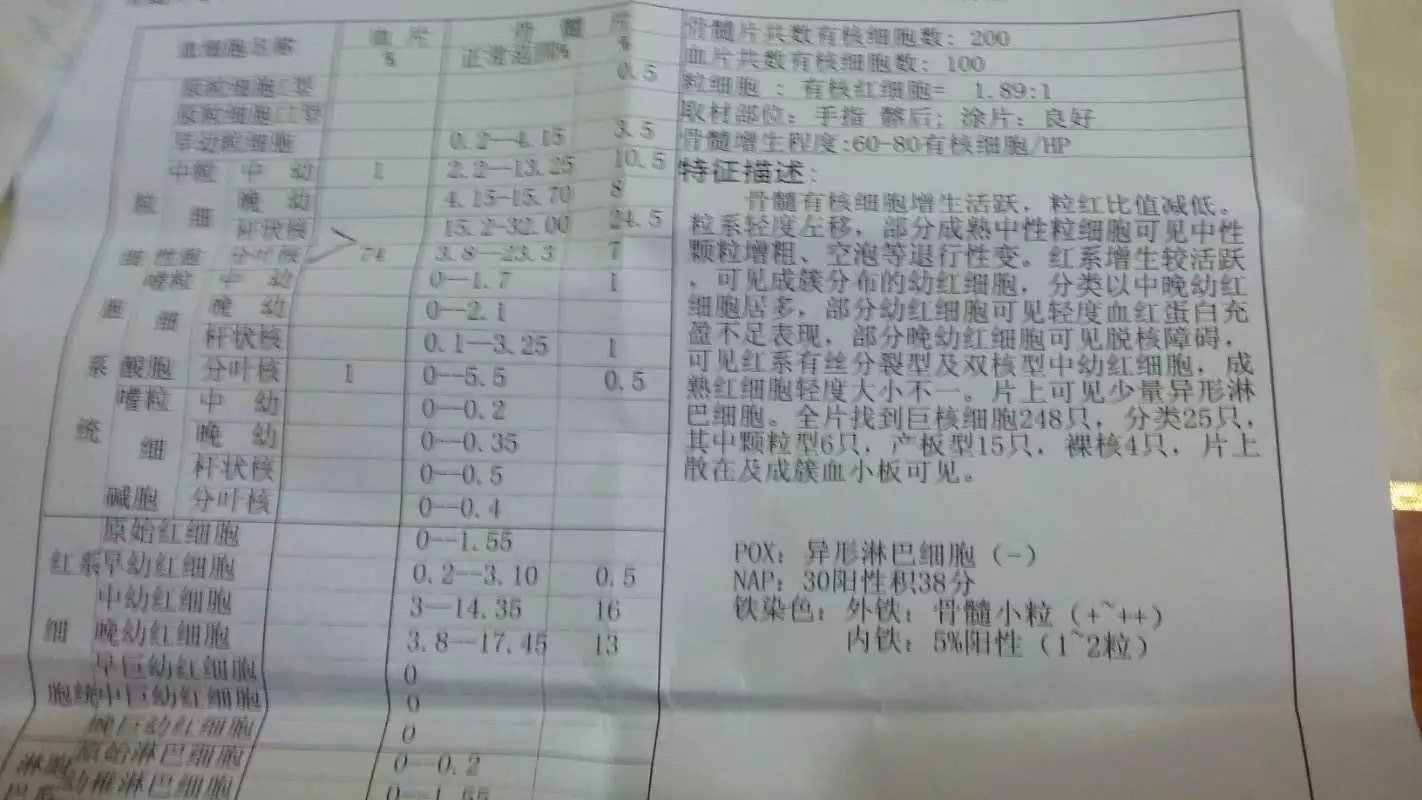 血细胞名称 血片 % 骨髓片
正常范围% %
原粒细胞I型 0.5
原粒细胞II型
早幼粒细胞 0.2--4.15 3.5
中粒 中幼 1 2.2--13.25 10.5
粒 细 晚幼 4.15-15.70 8
杆状核 15.2-32.00 24.5
细 性胞 分叶核 74 3.8--23.3 7
嗜粒 中幼 0--1.7 1
胞 细 晚幼 0--2.1
杆状核 0.1--3.25 1
系 酸胞 分叶核 1 0--5.5 0.5
嗜粒 中幼 0--0.2
统 细 晚幼 0--0.35
杆状核 0--0.5
碱胞 分叶核 0--0.4
原始红细胞 0--1.55
红系 早幼红细胞 0.2--3.10 0.5
中幼红细胞 3--14.35 16
细 晚幼红细胞 3.8--17.45 13
早巨幼红细胞 0
胞统 中巨幼红细胞 0
晚巨幼红细胞 0
淋胞 原始淋巴细胞 0--0.2
巴系 幼稚淋巴细胞 0--1.55
骨髓片共数有核细胞数：200
血片共数有核细胞数：100
粒细胞 ：有核红细胞= 1.89:1
取材部位：手指 髂后；涂片：良好
骨髓增生程度:60-80有核细胞/HP
特征描述：
骨髓有核细胞增生活跃，粒红比值减低。
粒系轻度左移，部分成熟中性粒细胞可见中性
颗粒增粗、空泡等退行性变。红系增生较活跃
，可见成簇分布的幼红细胞，分类以中晚幼红
细胞居多，部分幼红细胞可见轻度血红蛋白充
盈不足表现，部分晚幼红细胞可见脱核障碍，
可见红系有丝分裂型及双核型中幼红细胞，成
熟红细胞轻度大小不一。片上可见少量异形淋
巴细胞。全片找到巨核细胞248只，分类25只，
其中颗粒型6只，产板型15只，裸核4只，片上
散在及成簇血小板可见。
POX：异形淋巴细胞（-）
NAP：30阳性积38分
铁染色：外铁：骨髓小粒（+~++）
内铁：5%阳性（1~2粒）